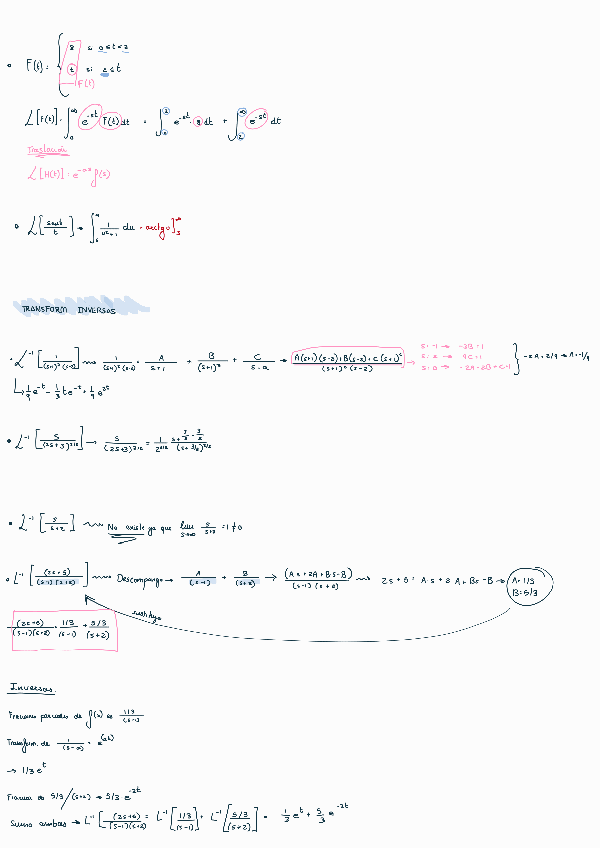 F(t) = { 8 si 0 ≤ t < 2
t si 2 ≤ t
F(t)
L[f(t)] = ∫₀^∞ e^{-st} F(t) dt = ∫₀² e^{-st} · 8 dt + ∫₂^∞ e^{-st} dt
Traslación
L[H(t)] = e^{-as} f(s)
L[sent/t] → ∫ 1/(u²+1) du = arctg u]
TRANSFORM INVERSAS
L⁻¹[1/((s+1)²(s-2))] → 1/((s+1)²(s-2)) = A/(s+1) + B/(s+1)² + C/(s-2) → (A(s+1)(s-2)+B(s-2)+C(s+1)²)/((s+1)²(s-2)) → s=-1 → -3B=1
s=2 → 9C=1
s=0 → -2A-2B+C=1 } A=-1/9
↳ 1/9 e^{-t} - 1/3 te^{-t} + 1/9 e^{2t}
L⁻¹[s/(2s+3)^{3/2}] → s/(2s+3)^{3/2} = 1/2^{3/2} (s + 3/2 - 3/2)/(s+3/2)^{3/2}
L⁻¹[s/(s+2)] → No existe ya que lim s→∞ s/(s+2) = 1 ≠ 0
L⁻¹[(2s+5)/((s-1)(s+2))] → Descompongo → A/(s-1) + B/(s+2) → (As+2A+Bs-B)/((s-1)(s+2)) → 2s+5 = As+2A+Bs-B → A=1/3
B=5/3
(2s+5)/((s-1)(s+2)) = 1/3/(s-1) + 5/3/(s+2)
Inversas.
Fracciones parciales de f(s) es 1/3/(s-1)
Transform. de 1/(s-a) = e^{(at)}
→ 1/3 e^t
Fracción de 5/3/(s+2) → 5/3 e^{-2t}
Sumo ambas → L⁻¹[(2s+5)/((s-1)(s+2))] = L⁻¹[1/3/(s-1)] + L⁻¹[5/3/(s+2)] = 1/3 e^t + 5/3 e^{-2t}